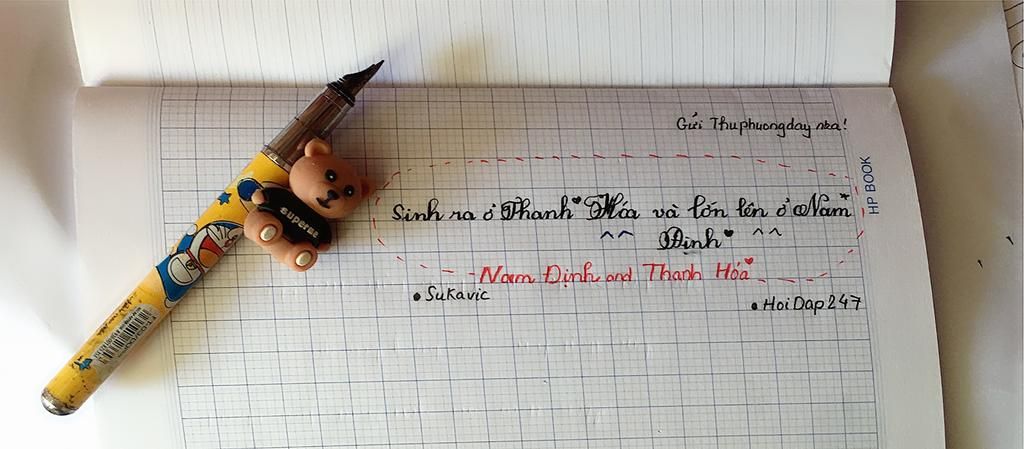 Gửi Thuphuongday nha!
Sinh ra ở Thanh Hóa và lớn lên ở Nam
Định
Nam Định and Thanh Hóa
Sukavic
HoiDap247
HP BOOK
superee